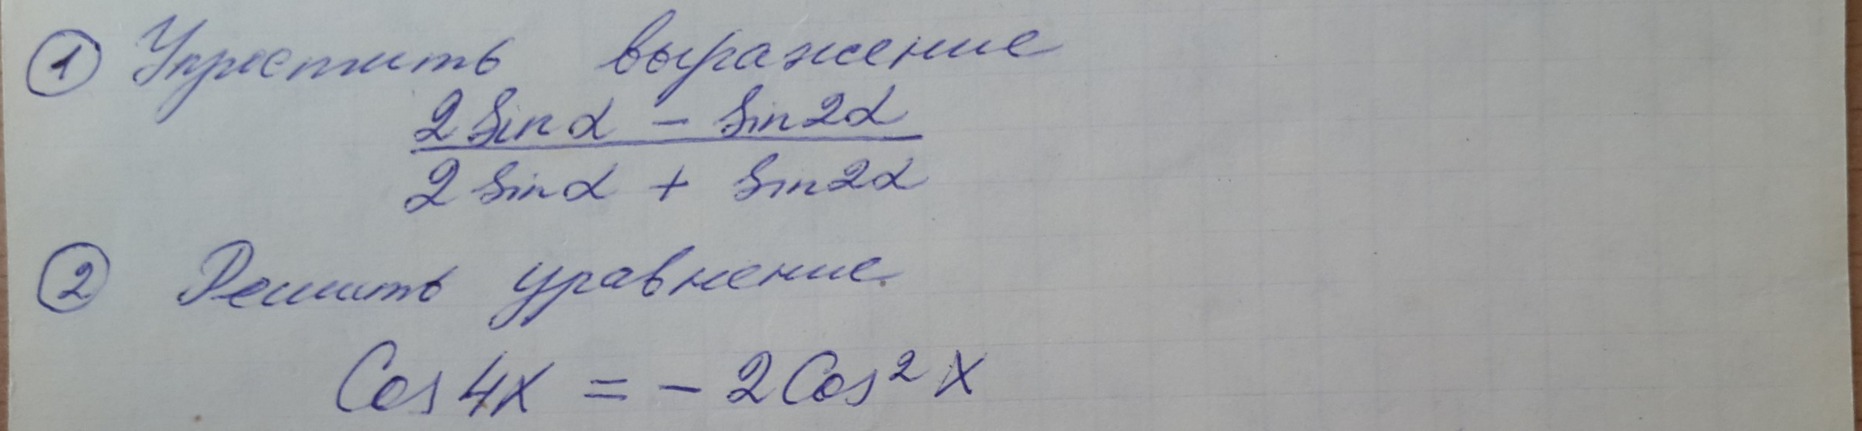 ① Упростить выражение
2 Sin α - Sin 2α
2 Sin α + Sin 2α
② Решить уравнение.
Cos 4x = - 2 Cos² x